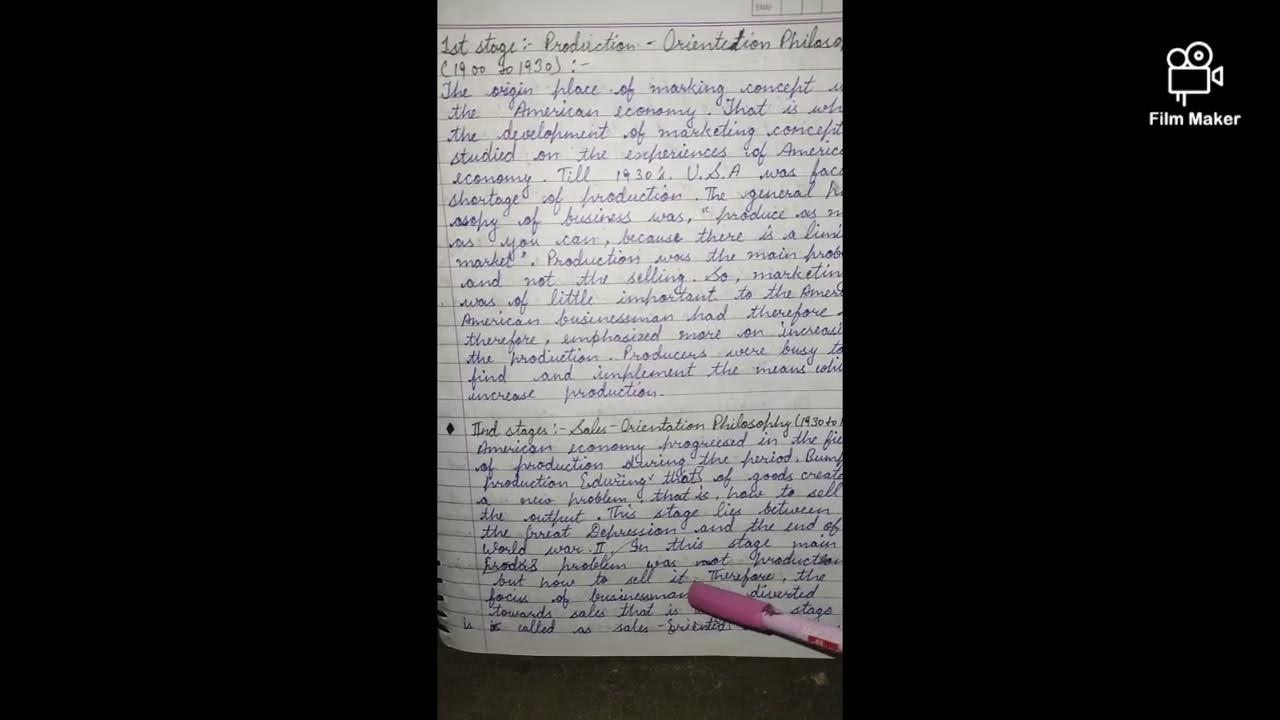 1st stage:- Production - Orientation Philoso
(1900 to 1930) :-
The origin place of marking concept
the American economy. That is wh
the development of marketing concept
studied on the experiences of America
economy. Till 1930's. U.S.A was fac
shortage of production. The general
osopy of business was, "produce as m
as you can, because there is a limi
market". Production was the main prob
and not the selling. So, marketin
was of little important to the Ameri
American businessman had therefore
therefore, emphasized more on increasi
the production. Producers were busy to
find and implement the means whi
increase production.
IInd stages:- Sales-Orientation Philosophy (1930 to
American economy progreesed in the fie
of production during the period. Bump
production during that of goods create
a new problem, that is, how to sell
the output. This stage lies between
the Great Depression and the end of
World war II. In this stage main
problem was not production
but how to sell it. Therefore, the
focus of businessman diverted
towards sales that is stage
is called as sales-
Film Maker